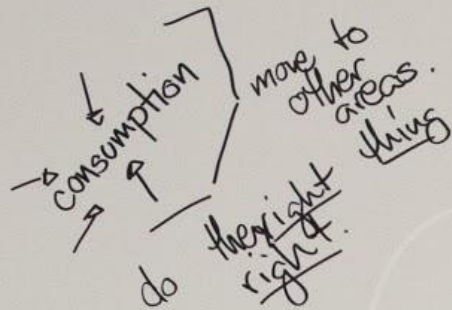 consumption
move to
other
areas.
do the right thing
right.